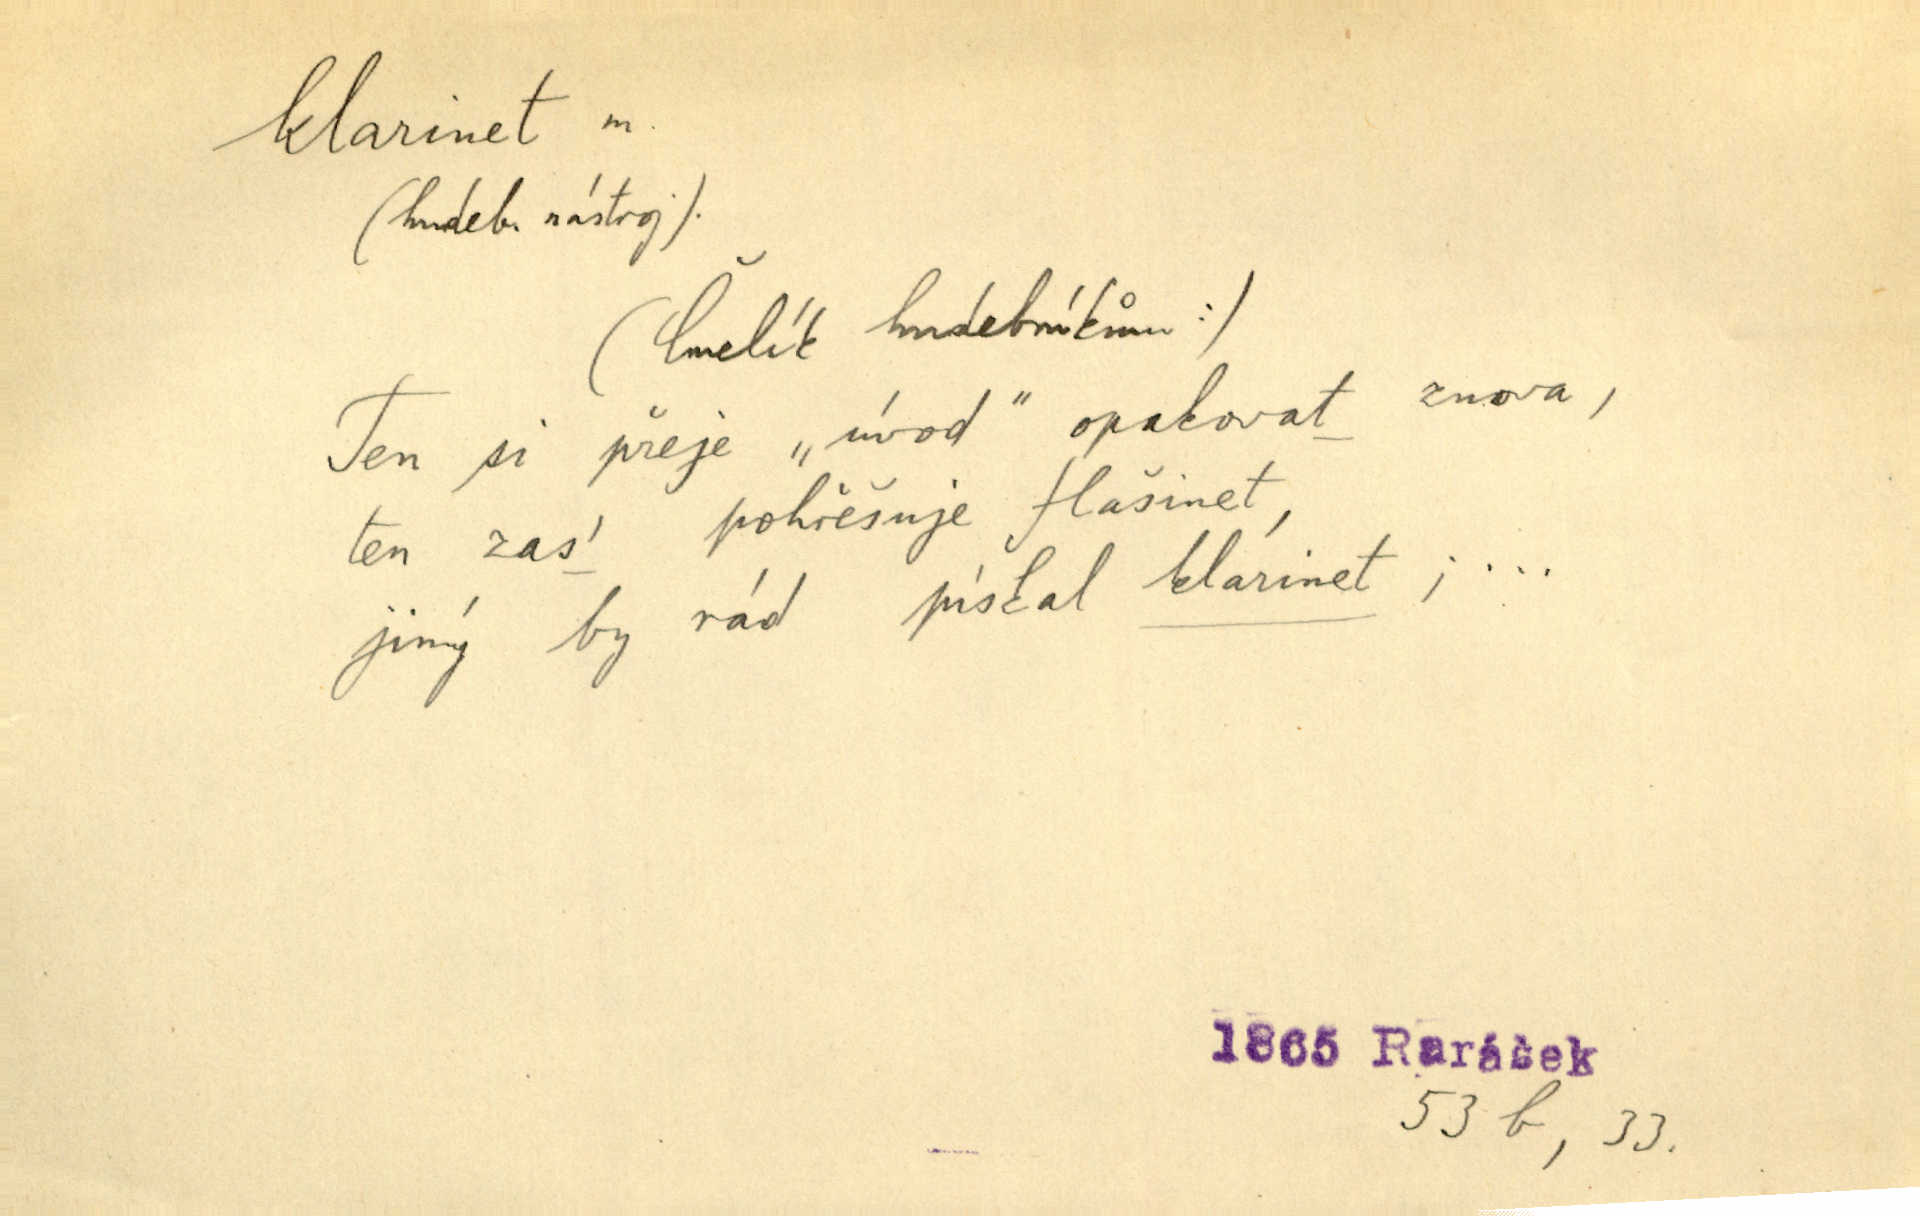 klarinet m.
(hudeb. nástroj).
(Čmelík hudebníkům:)
Ten si přeje „úvod" opakovat znova,
ten zas' pohřešuje flašinet,
jiný by rád pískal klárinet; ...
1865 Rarášek
53 b, 33.